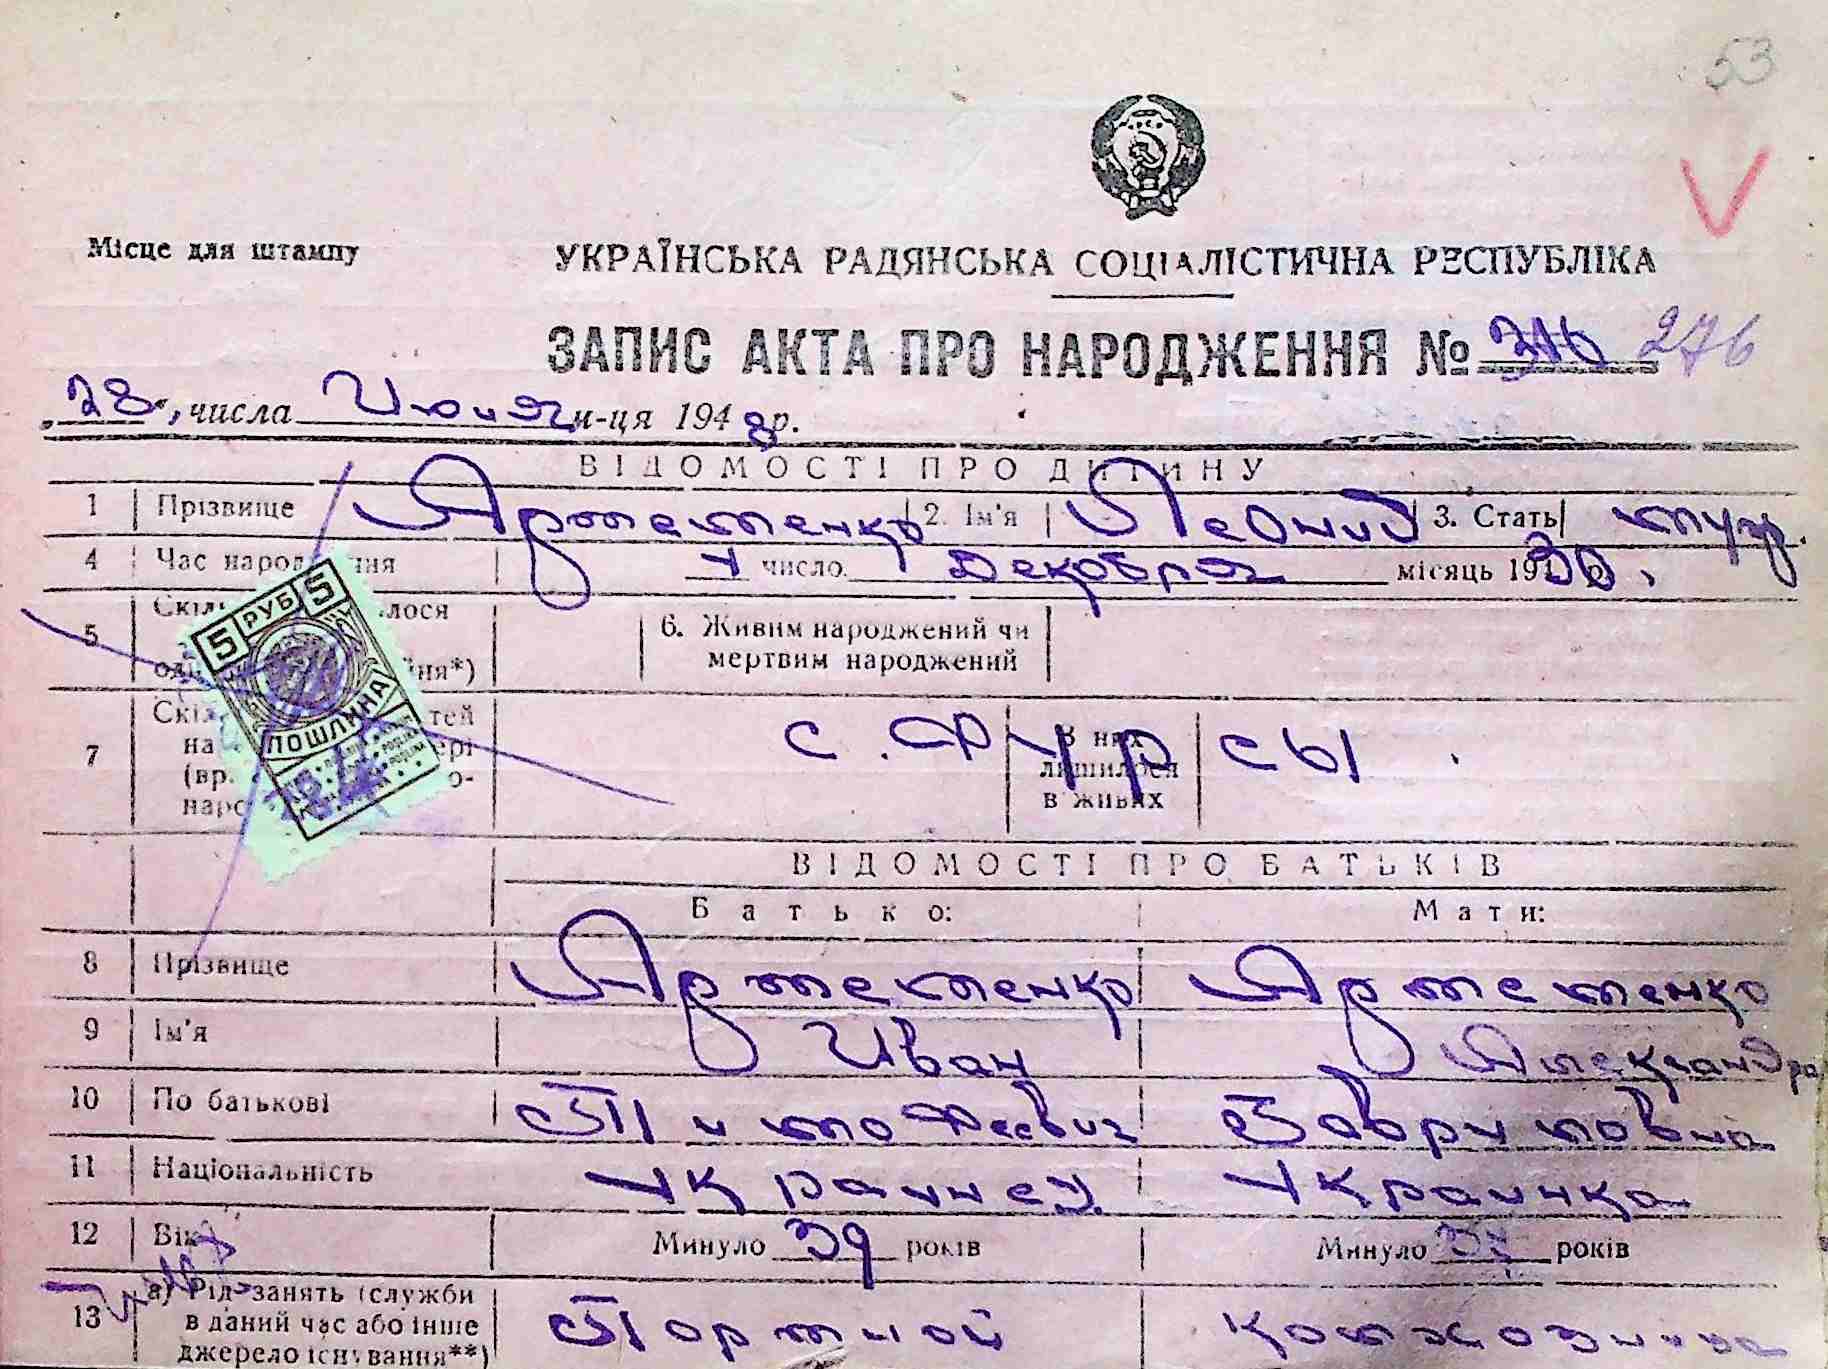 53
Місце для штампу
УКРАЇНСЬКА РАДЯНСЬКА СОЦІАЛІСТИЧНА РЕСПУБЛІКА
ЗАПИС АКТА ПРО НАРОДЖЕННЯ № 316 276
28, числа Июня м-ця 1948 р.
ВІДОМОСТІ ПРО ДИТИНУ
1 Прізвище Артеменко 2. Ім'я Леонид 3. Стать муж.
4 Час народження 1 число Декабря місяць 1930 р.
5 6. Живим народжений чи
мертвим народжений
5 РУБ 5
ПОШЛИНА
7 с. Фурсы.
В них
лишилося
в живих
ВІДОМОСТІ ПРО БАТЬКІВ
Батько: Мати:
8 Прізвище Артеменко Артеменко
9 Ім'я Иван Александра
10 По батькові Тимофеевич Гавриловна
11 Національність Украинец Украинка
12 Вік Минуло 39 років Минуло років
13 а) Рід занять (служби
в даний час або інше
джерело існування**) Портной колхозница